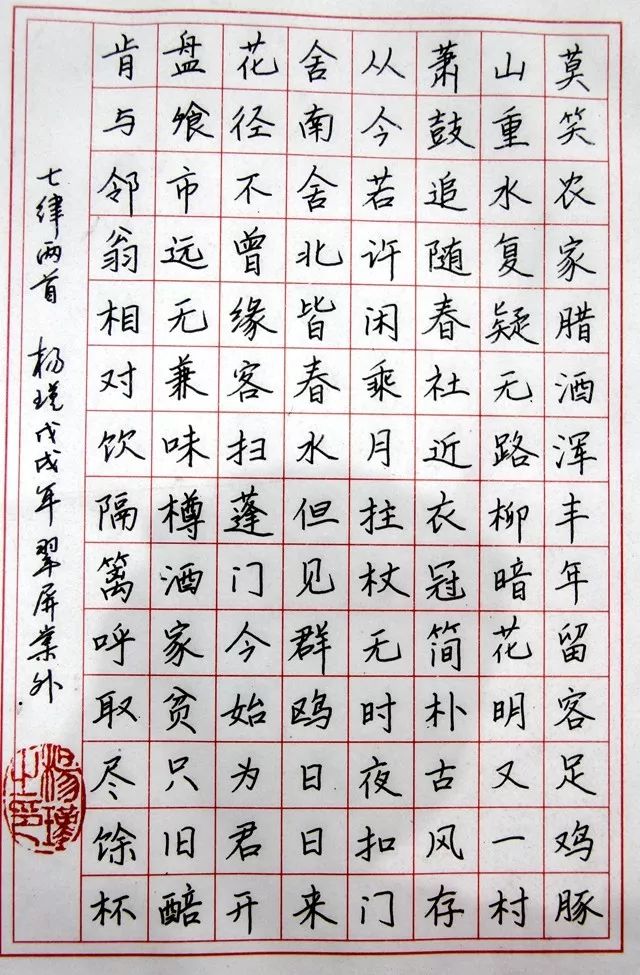 莫笑农家腊酒浑丰年留客足鸡豚
山重水复疑无路柳暗花明又一村
萧鼓追随春社近衣冠简朴古风存
从今若许闲乘月拄杖无时夜扣门
舍南舍北皆春水但见群鸥日日来
花径不曾缘客扫蓬门今始为君开
盘飧市远无兼味樽酒家贫只旧醅
肯与邻翁相对饮隔篱呼取尽馀杯
七律两首 杨瑾戊戌年 翠屏外
楊瑾之印